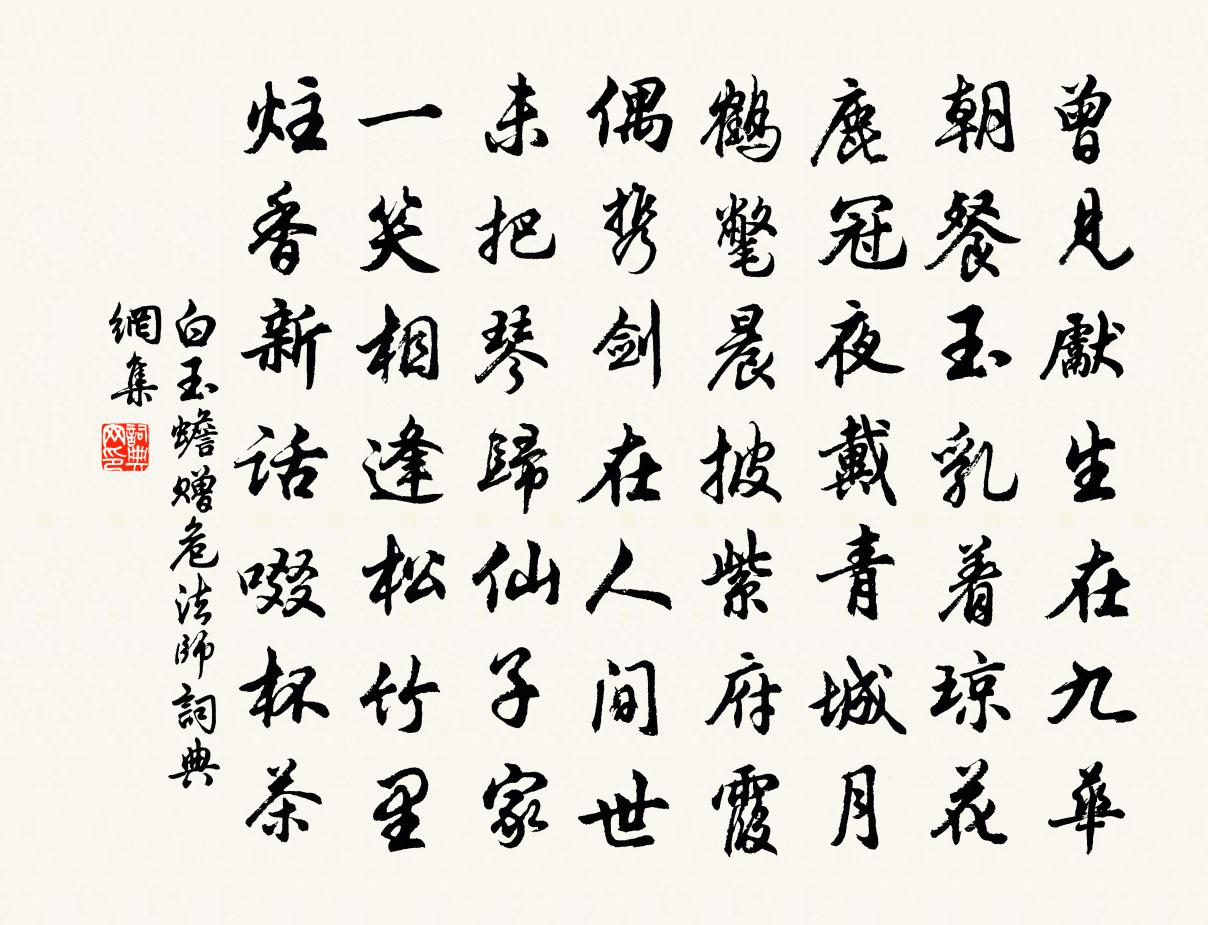 曾見獻生在九華
朝餐玉乳着琼花
鹿冠夜戴青城月
鶴氅晨披紫府霞
偶携剑在人间世
未把琴歸仙子家
一笑相逢松竹里
炷香新话啜杯茶
白玉蟾赠危法師詞典
網集
詞典网印